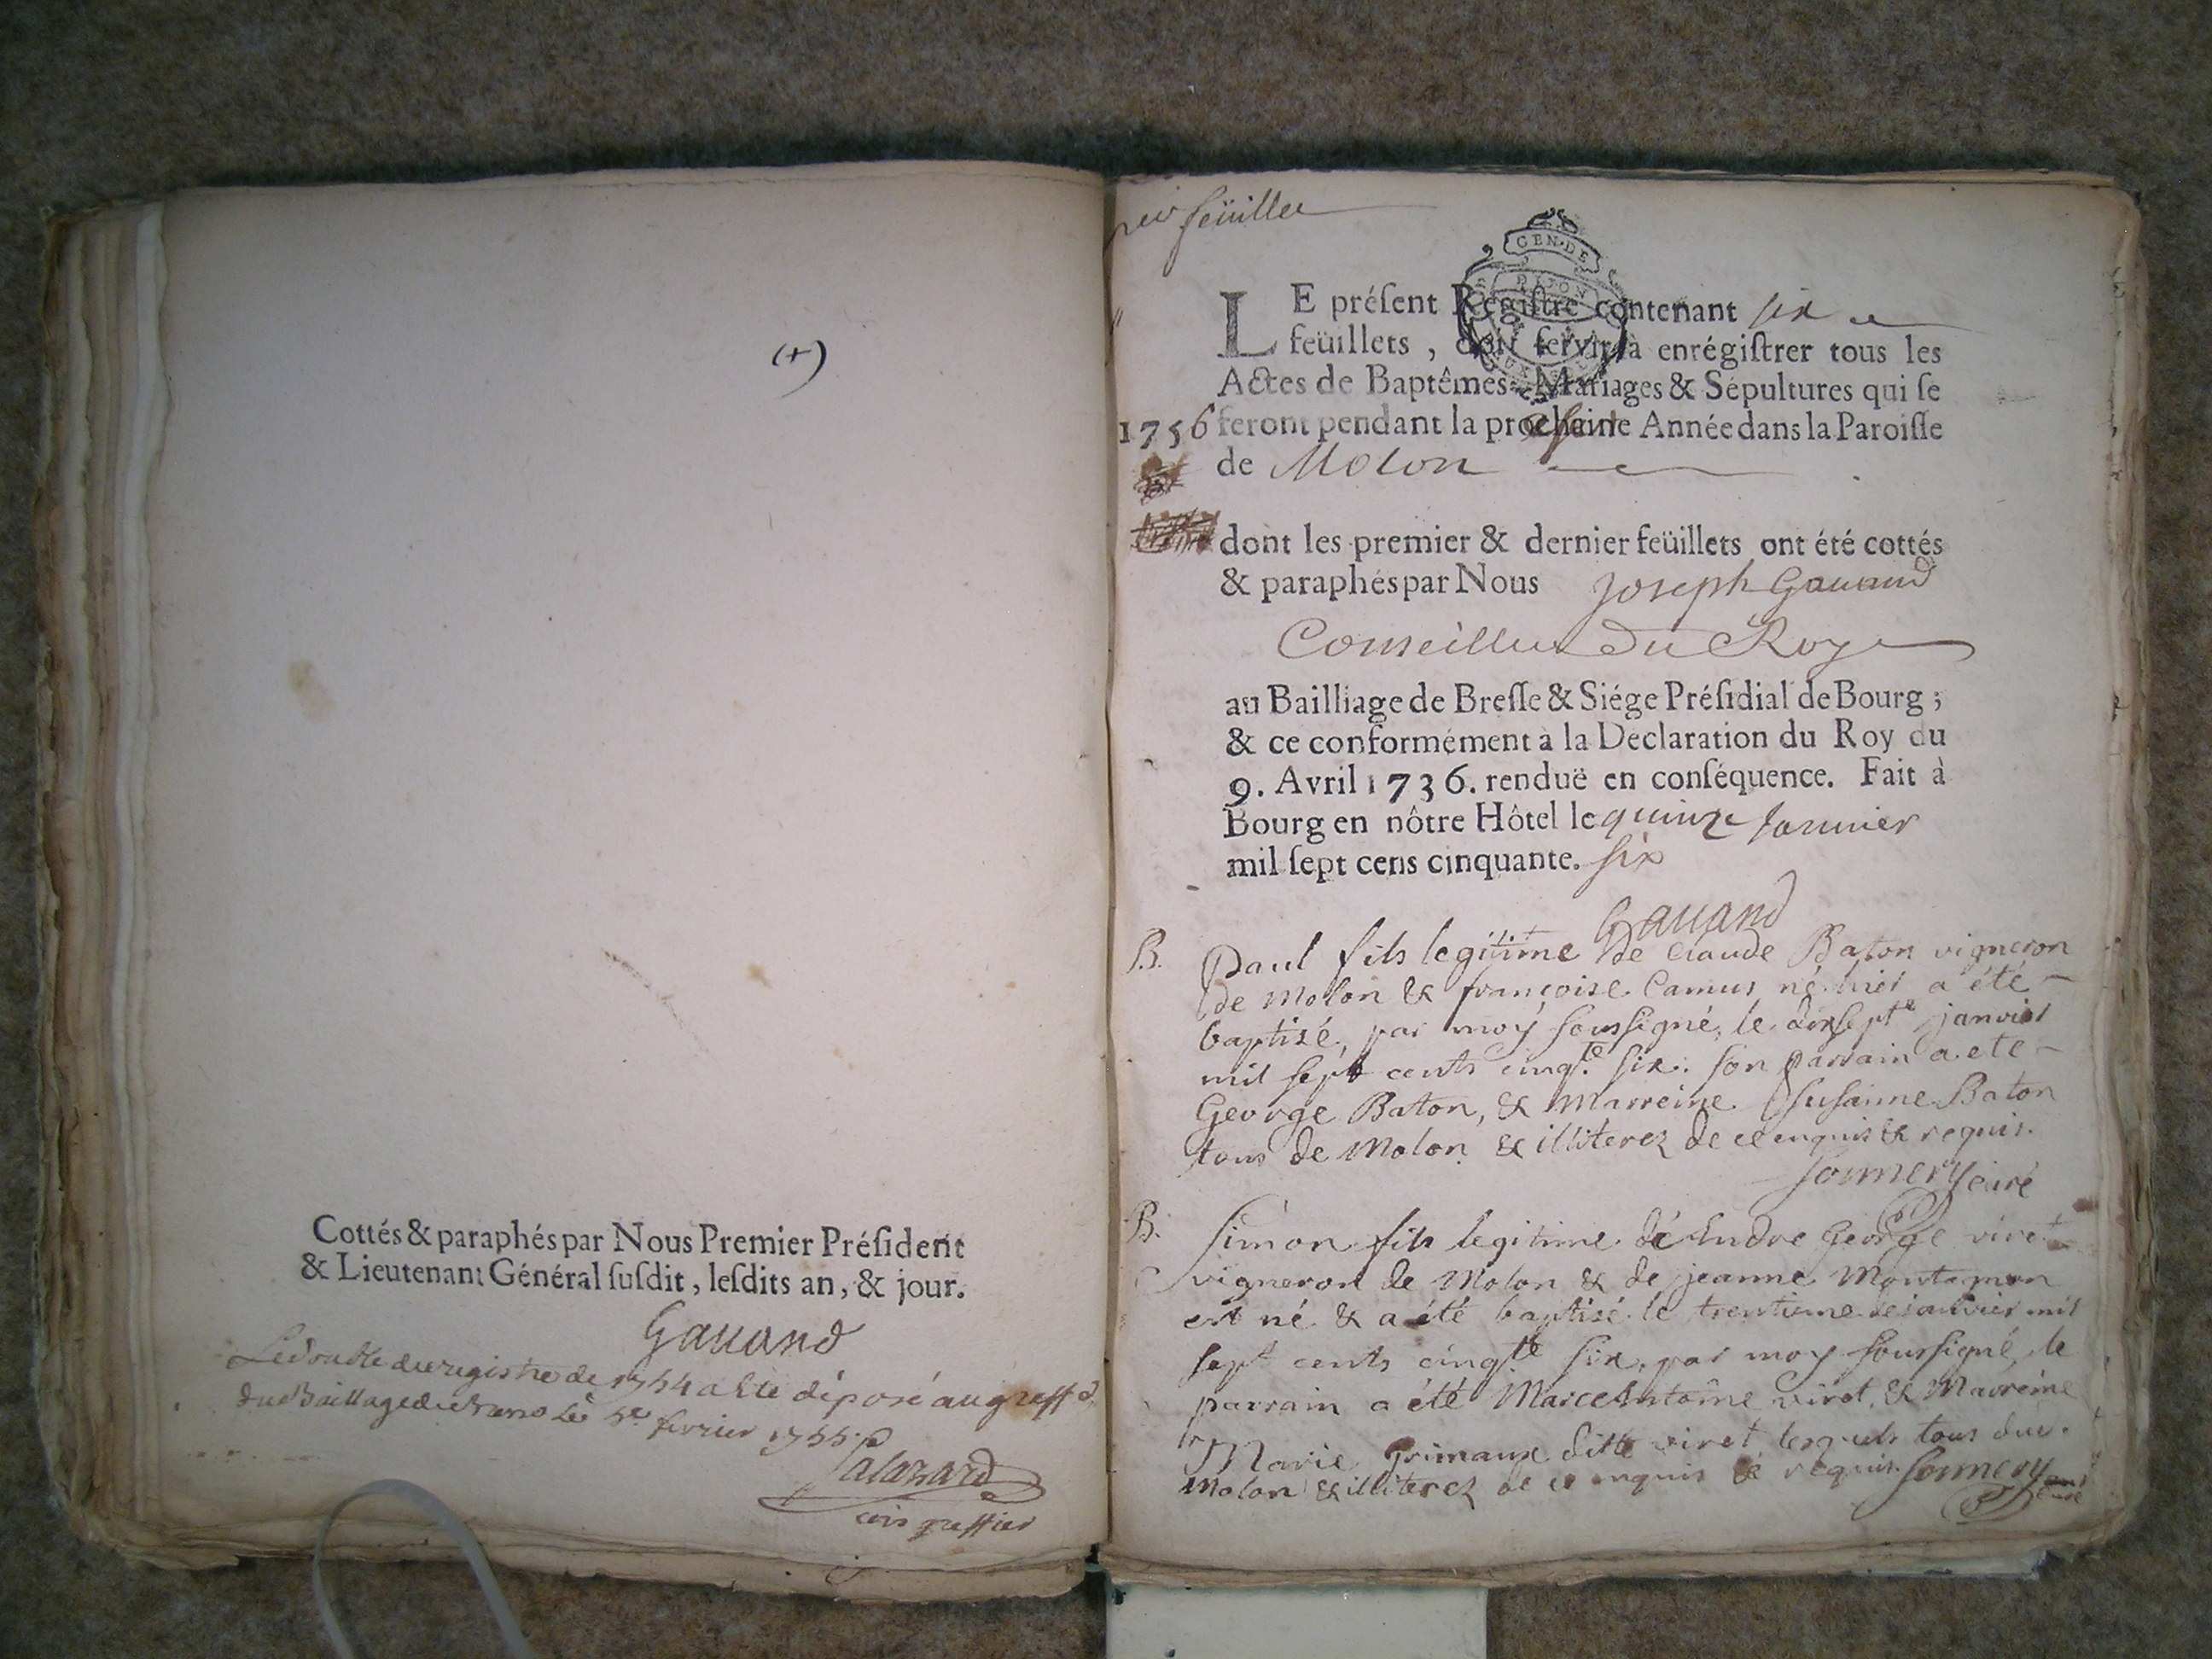 (+)
Cottés & paraphés par Nous Premier Préſident
& Lieutenant Général ſuſdit, leſdits an, & jour.
Gauand
Le double du registre de 1754 a été déposé au greffe
du Baillage le fevrier 1755.
greffier
feüillet
GEN·DE
DIJON
LE préſent Regiſtre contenant six
feüillets, doit ſervir à enrégiſtrer tous les
Actes de Baptêmes, Mariages & Sépultures qui ſe
1756 feront pendant la prochaine Année dans la Paroiſſe
de Molon
dont les premier & dernier feüillets ont été cottés
& paraphés par Nous Joseph Gauand
Conseiller du Roy
au Bailliage de Breſſe & Siége Préſidial de Bourg;
& ce conformément à la Declaration du Roy du
9. Avril 1736. renduë en conſéquence. Fait à
Bourg en nôtre Hôtel le quinze Januier
mil ſept cens cinquante. six
Gauand
B. Paul fils legitime de Claude Baton vigneron
de Molon & françoise Camus né hier a été
baptisé, par moy soussigné, le dixsept.e janvier
mil sept cents cinq.te six. son parrain a ete
George Baton, & Marreine Susanne Baton
tous de Molon & illiterez de ce enquis & requis.
Sommery curé
B. Simon fils legitime de Andre George viret
vigneron de Molon & de jeanne
est né & a été baptisé le trentieme de janvier mil
sept cents cinq.te six, par moy soussigné, le
parrain a été Marc Antoine viret, & Marreine
Marie Grimaux ditte viret, lesquels tous du
Molon & illiterez de ce enquis & requis. Sommery curé